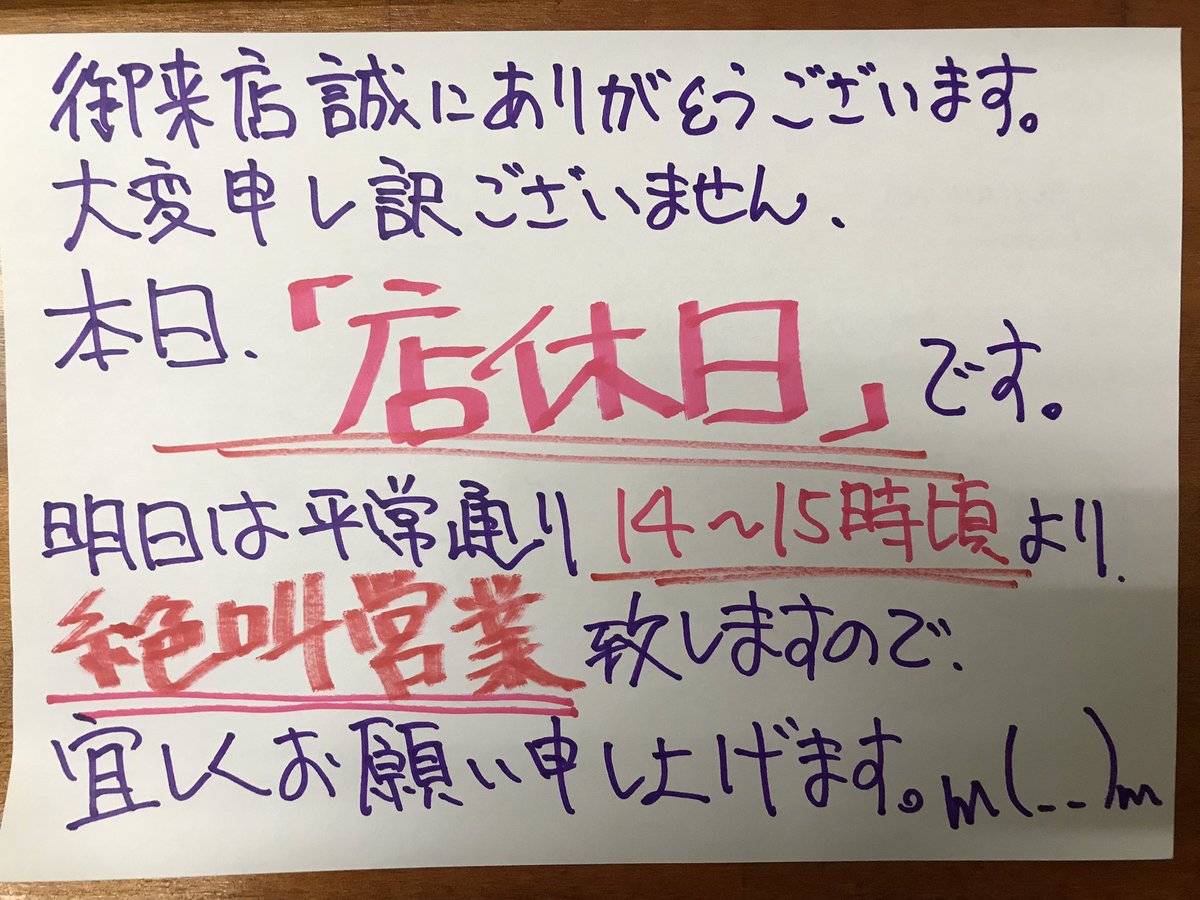 御来店誠にありがとうございます。
大変申し訳ございません、
本日、「店休日」です。
明日は平常通り14〜15時頃より、
絶叫営業致しますので、
宜しくお願い申し上げます。m(__)m